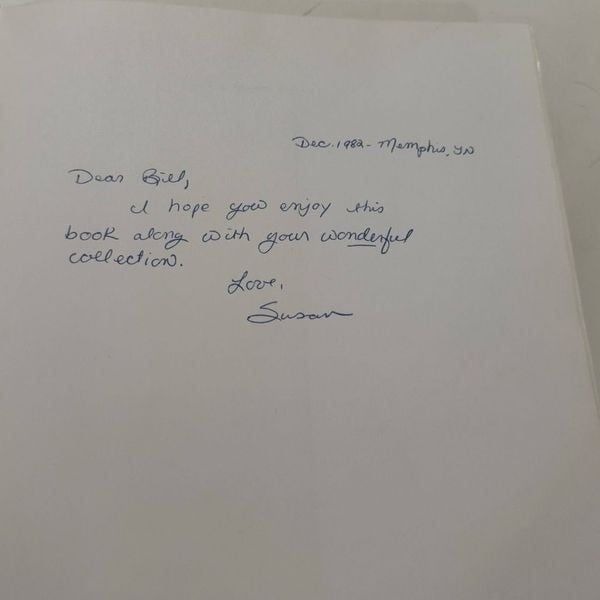 Dec. 1982 - Memphis, TN
Dear Bill,
I hope you enjoy this
book along with your wonderful
collection.
Love,
Susan